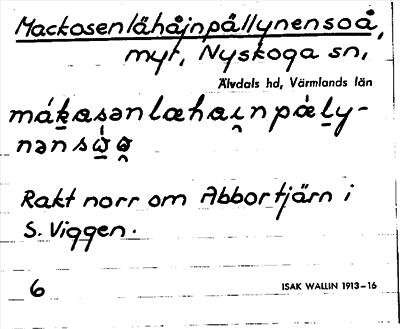 Mackosenlähåjnpållynensoå,
myr, Nyskoga sn,
Älvdals hd, Värmlands län
mákasənlæhai̯npály-
nənsὼo̯
Rakt norr om Abbortjärn i
S. Viggen.
6
ISAK WALLIN 1913–16